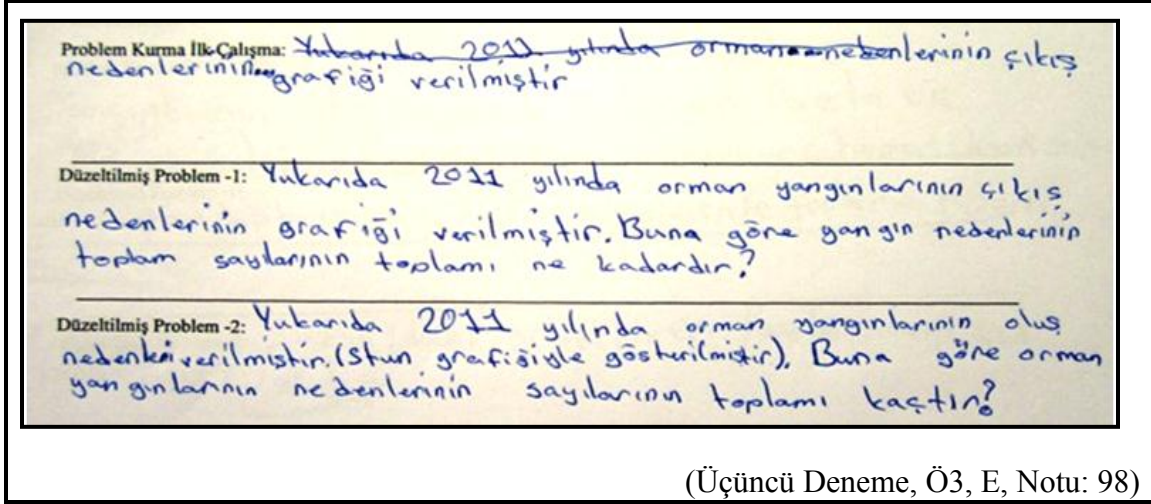 Problem Kurma İlk Çalışma: Yukarıda 2011 yılında orman nedenlerinin çıkış
nedenlerinin grafiği verilmiştir
Düzeltilmiş Problem -1: Yukarıda 2011 yılında orman yangınlarının çıkış
nedenlerinin grafiği verilmiştir. Buna göre yangın nedenlerinin
toplam sayılarının toplamı ne kadardır?
Düzeltilmiş Problem -2: Yukarıda 2011 yılında orman yangınlarının oluş
nedenleri verilmiştir. (Stun grafiğiyle gösterilmiştir). Buna göre orman
yangınlarının nedenlerinin sayılarının toplamı kaçtır?
(Üçüncü Deneme, Ö3, E, Notu: 98)